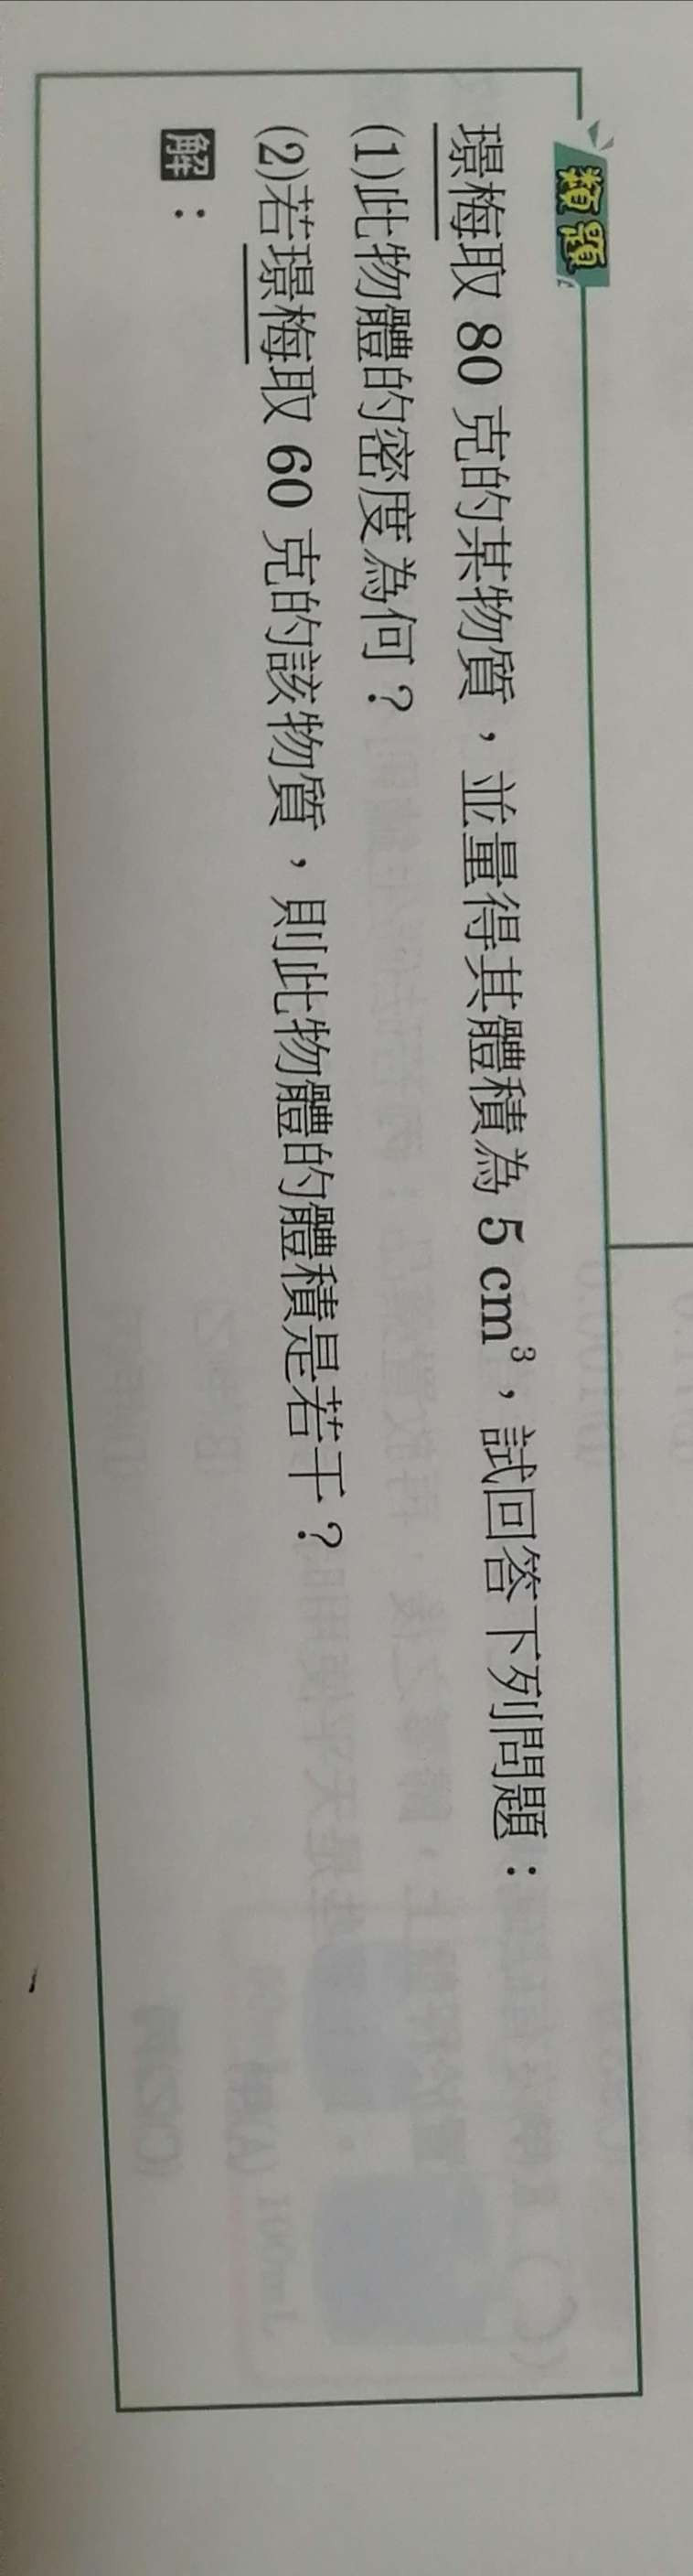 類題
璟梅取 80 克的某物質，並量得其體積為 5 cm³，試回答下列問題：
(1)此物體的密度為何？
(2)若璟梅取 60 克的該物質，則此物體的體積是若干？
解：